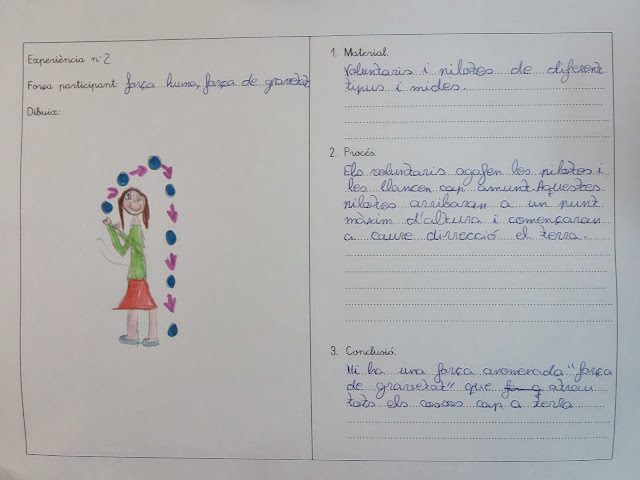 Experiència n: 2
Força participant: força huma, força de gravetat
Dibuix:
1. Material.
Voluntaris i pilotes de diferent
tipus i mides.
2. Procés.
Els voluntaris agafen les pilotes i
les llancen cap amunt. Aquestes
pilotes arribaran a un punt
màxim d'altura i començaran
a caure dirrecció el terra.
3. Conclusió.
Hi ha una força anomenada "força
de gravetat" que atrau
tots els cossos cap a terra